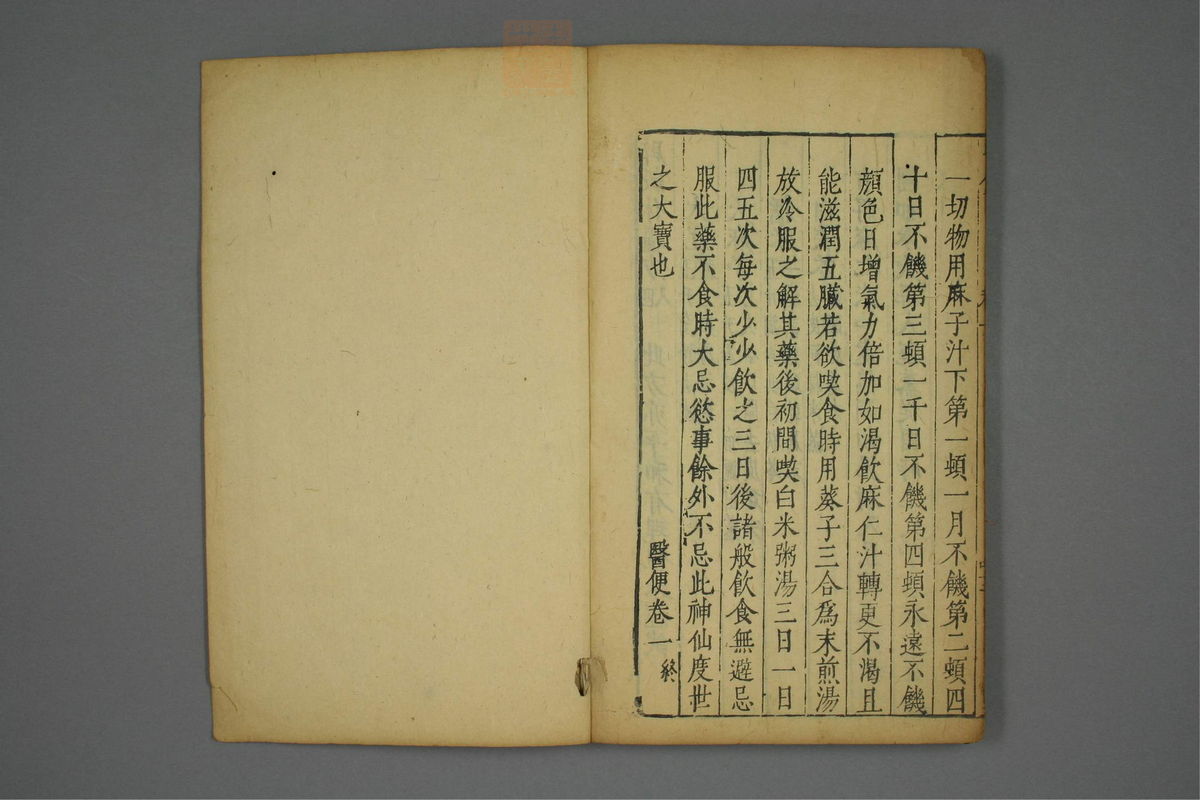 一切物用麻子汁下第一頓一月不饑第二頓四
十日不饑第三頓一千日不饑第四頓永遠不饑
顔色日增氣力倍加如渴飲麻仁汁轉更不渴且
能滋潤五臟若欲喫食時用葵子三合爲末煎湯
放冷服之解其藥後初間喫白米粥湯三日一日
四五次每次少少飲之三日後諸般飲食無避忌
服此藥不食時大忌慾事餘外不忌此神仙度世
之大寶也
醫便卷一 終